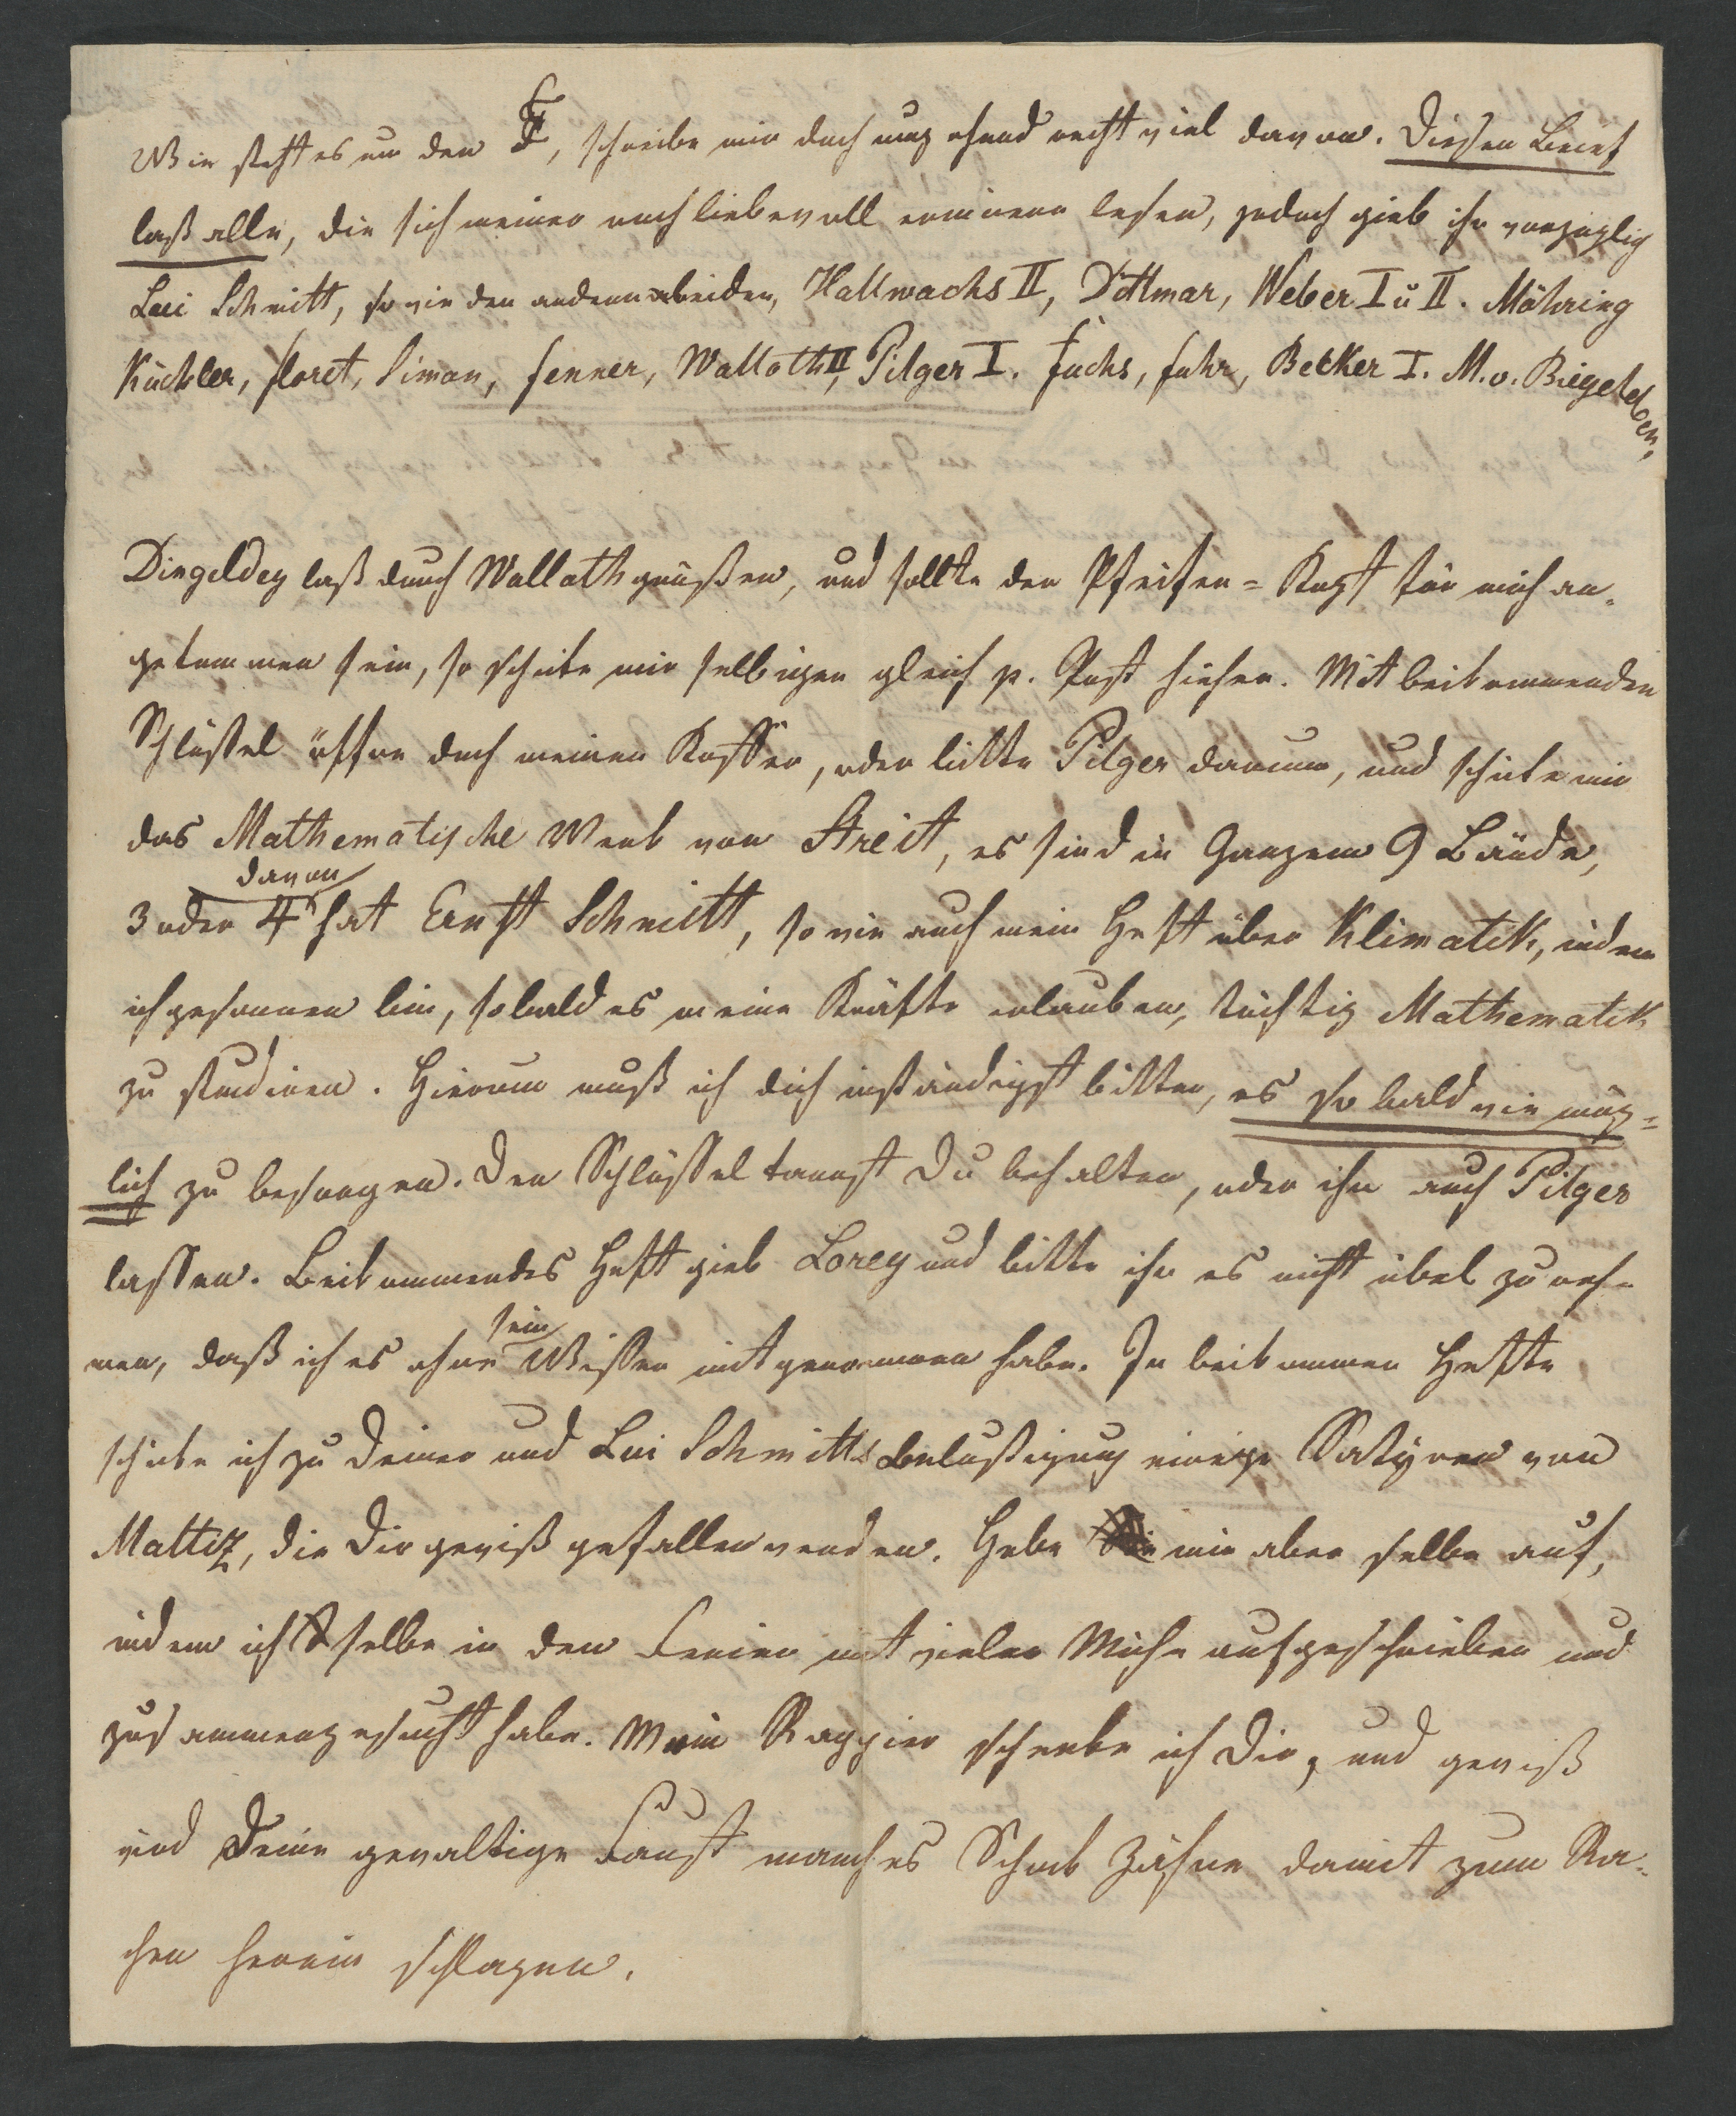 Wie steht es um den , schreibe mir doch umgehend recht viel davon. Diesen Brief
laß alle, die sich meiner noch liebevoll erinnern lesen, jedoch gieb ihn vorzüglig
Lui Schmitt, so wie den andern beiden, Hallwachs II, Dittmar, Weber I u II. Möhring
Küchler, Floret, Simon, Fenner, Walloth II, Pilger I. Fuchs, Fuhr, Becker I. M. v. Biegeleben,
Dingeldey laß durch Walloth grüßen, und sollte der Pfeifen-Kopf für mich an-
gekommen sein, so schicke mir selbigen gleich p. Post hieher. Mit beikommenden
Schlüßel öffne doch meinen Koffer, oder bitte Pilger darum, und schicke mir
das Mathematische Werk von Streit, es sind in Ganzem 9 Bände,
davon
3 oder 4 hat Ernst Schmitt, so wie auch mein Heft über Klimatik, indem
ich gesonnen bin, sobald es meine Kräfte erlauben, tüchtig Mathematik
zu studiren. Hierum muß ich dich inständigst bitten, es so bald wie mög-
lich zu besorgen. Den Schlüssel kannst Du behalten, oder ihn auch Pilger
lassen. Beikommendes Heft gieb Lorey und bitte ihn es nicht übel zu neh-
sein
men, daß ich es ohne Wissen mitgenommen habe. In beikommen Hefte
schicke ich zu Deiner und Lui Schmitts Belustigung einige Satyren von
Mattiz, die Dir gewiß gefallen werden. Hebe mir aber selbe auf,
indem ich selbe in den Ferien mit vieler Mühe aufgeschrieben und
zusammengesucht habe. Mein Rappier schenke ich Dir, und gewiß
wird Deine gewaltige Faust manches Schock Zähne damit zum Ra-
chen herein schlagen.